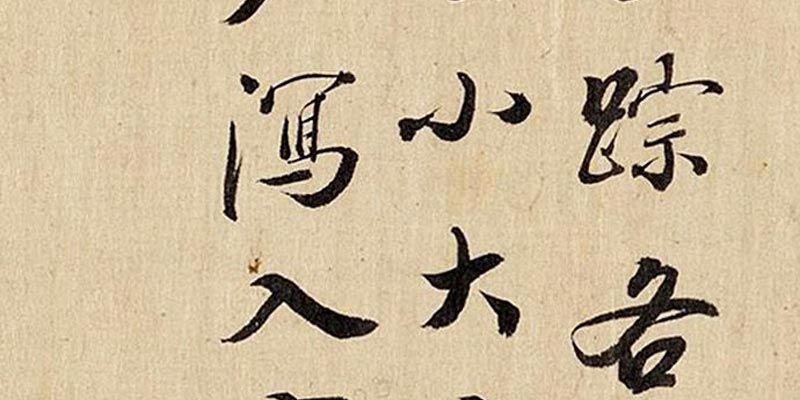 踪各
小大
瀉入